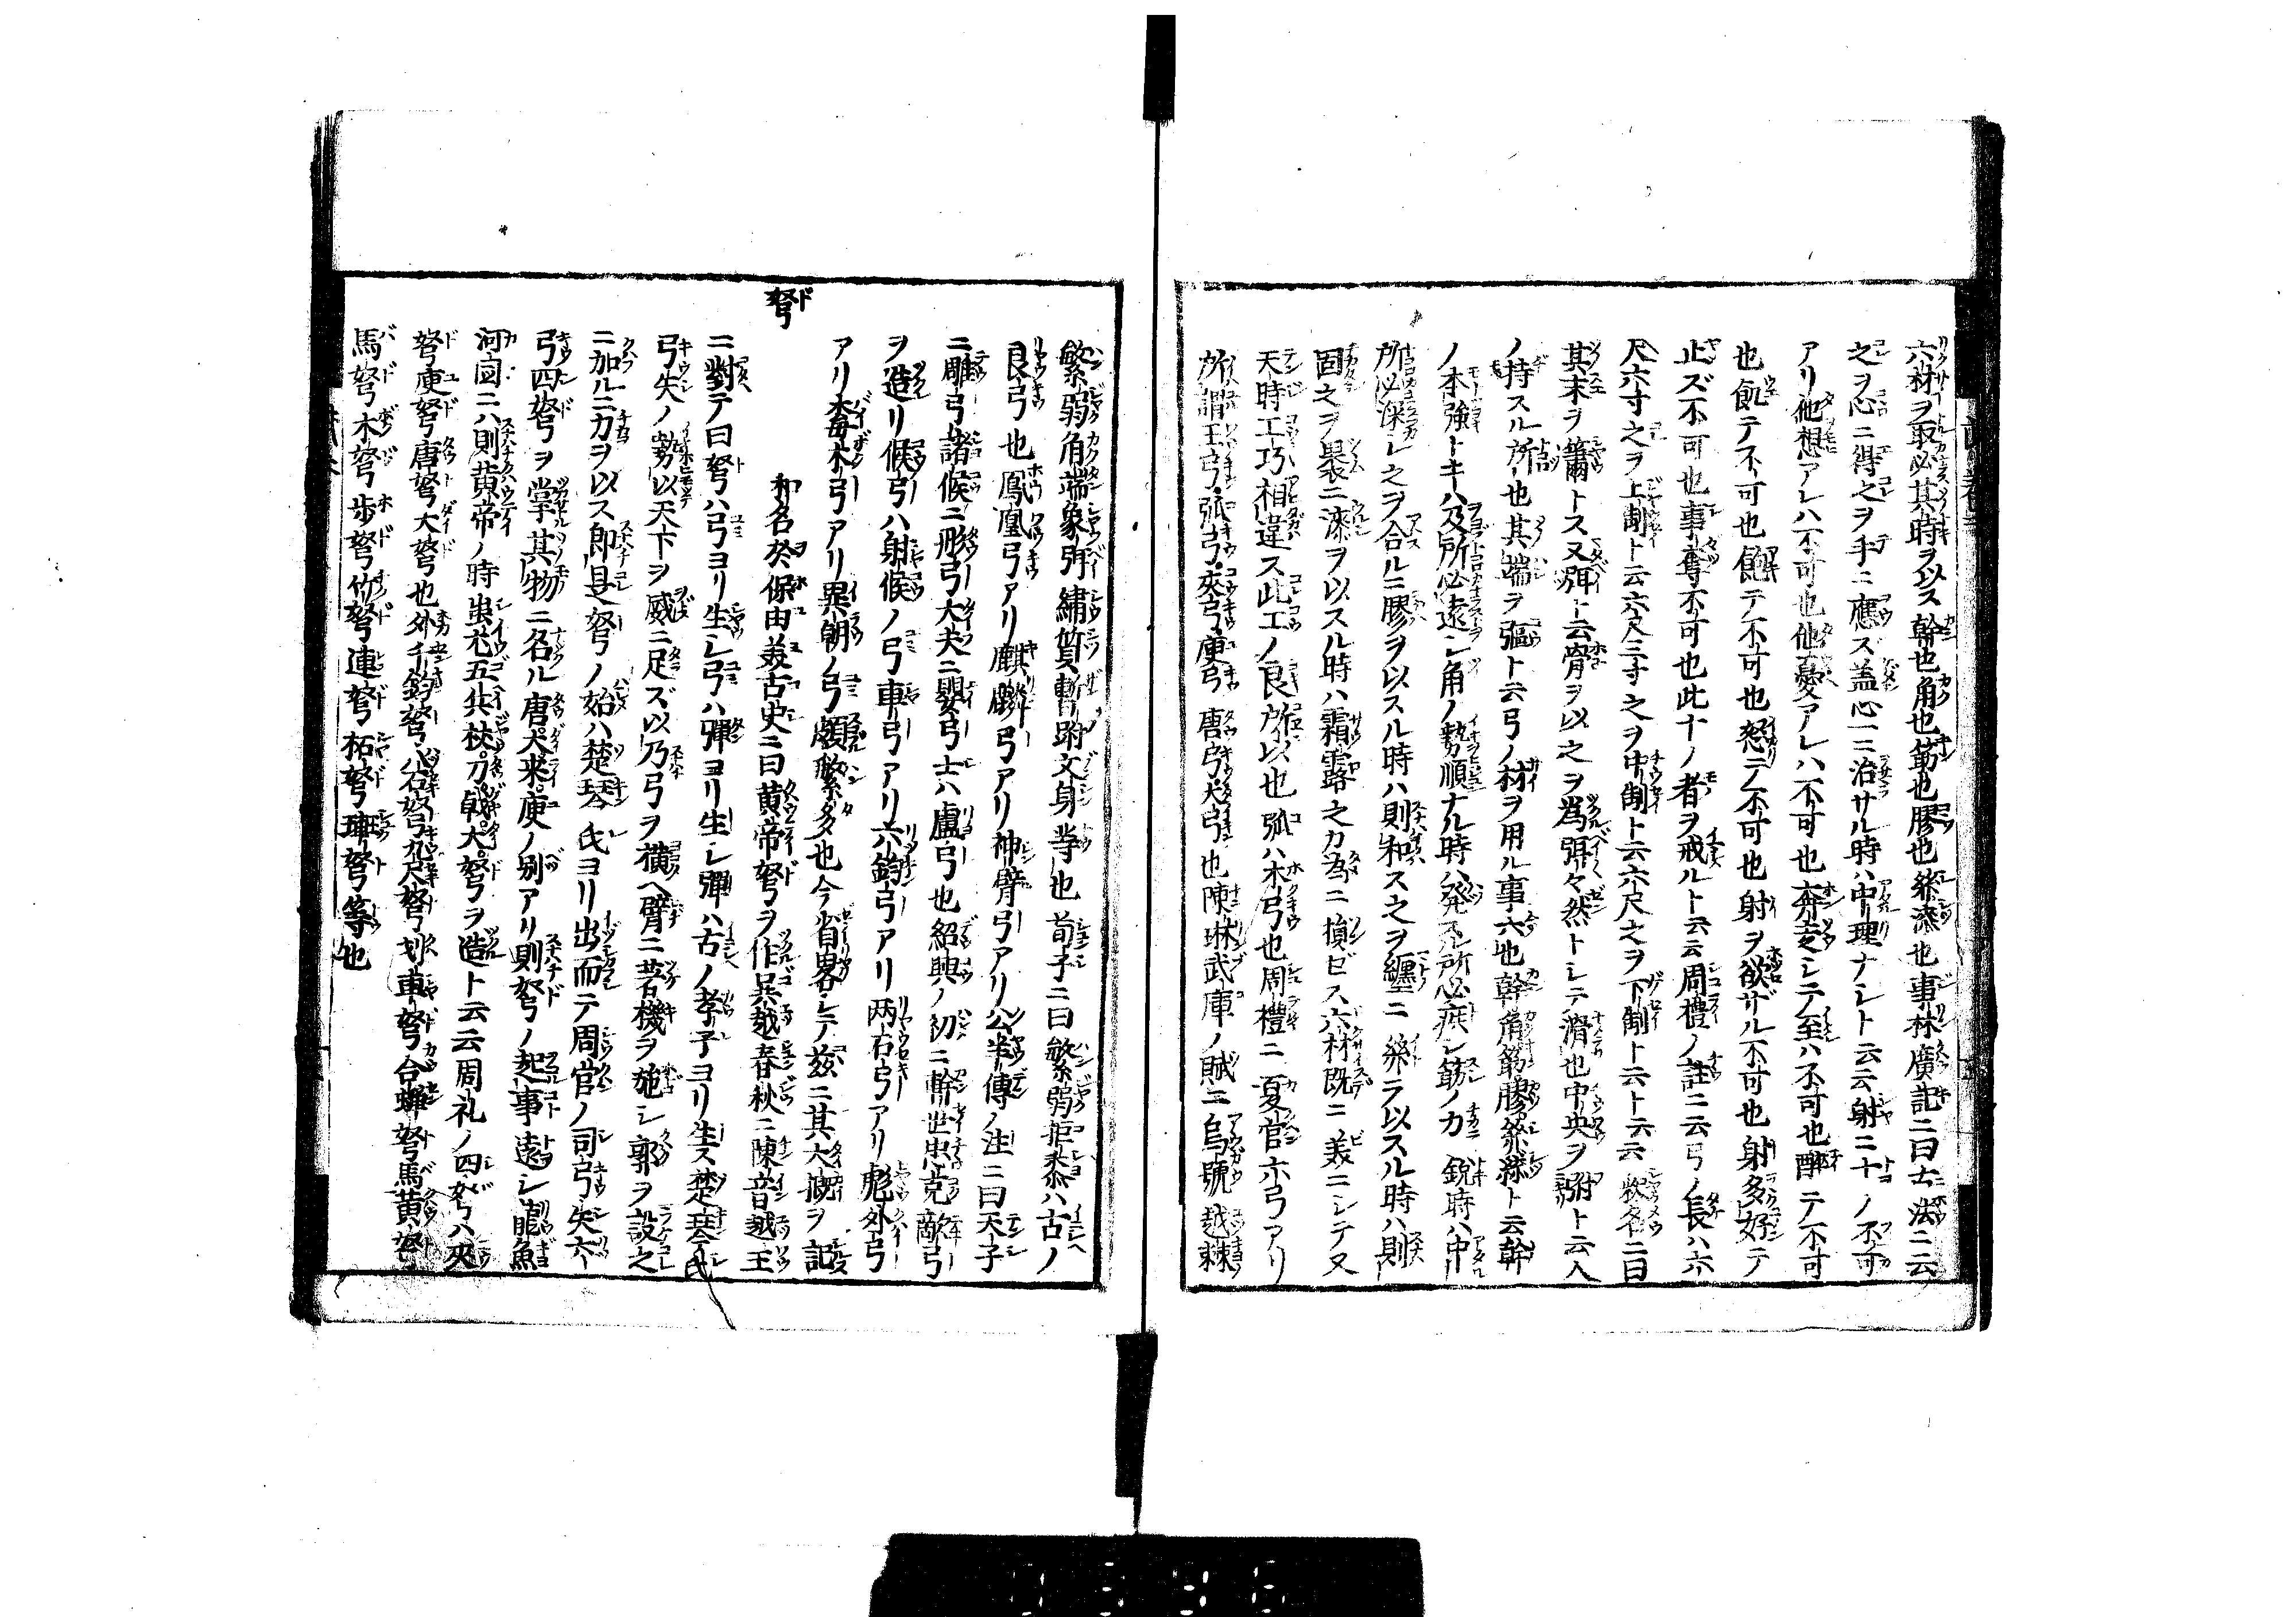 六材ヲ取必其時ヲ以ス幹也角也筋也膠也糸漆也事林廣記ニ曰古法ニ云
之ヲ心ニ得之ヲ手ニ應ズ盖心ニ治サル時ハ中理ナレト云云射ニ十ノ不可
アリ他想アレハ不可也他憂アレハ不可也奔走シテ至ハ不可也醉テ不可
也飢テ不可也飽テ不可也怒テ不可也射ヲ欲ザル不可也射多好テ
止ズ不可也事奪不可也此十ノ者ヲ戒ルト云云周禮ノ註ニ云弓ノ長ハ六
尺六寸之ヲ上制ト云六尺三寸之ヲ中制ト云六尺之ヲ下制ト云ト云云釈名ニ曰
其末ヲ簫トス又弭ト云骨ヲ以之ヲ爲弭々然トシテ滑也中央ヲ弣ト云人
ノ持スル所也其端ヲ彄ト云弓ノ材ヲ用ル事六也幹角筋膠糸漆ト云幹
ノ本強トキハ及所必遠シ角ノ勢順ナル時ハ発スル所必疾シ筋ノ力鋭時ハ中
所必深シ之ヲ合ルニ膠ヲ以スル時ハ則和ス之ヲ纒ニ糸ヲ以スル時ハ則
固之ヲ褁ニ漆ヲ以スル時ハ霜露之カ為ニ損ゼス六材既ニ美ニシテ又
天時工巧相違ス此工ノ良所以也弧ハ木弓也周禮ニ夏官六弓アリ
所謂王弓弧弓夾弓庾弓唐弓大弓也陳琳武庫ノ賦ニ烏號越棘
繁弱角端象弭繡質文身等也荀子ニ曰繁弱拒黍ハ古ノ
良弓也鳳凰弓アリ麒麟弓アリ神臂弓アリ公羊傳ノ注ニ曰天子
ニ雕弓諸候ニ彤弓大夫ニ嬰弓士ハ盧弓也紹興ノ初ニ韓世忠克敵弓
ヲ造リ候弓ハ射候ノ弓車弓アリ六鈞弓アリ两石弓アリ彪外弓
アリ毒木弓アリ異朝ノ弓頗繁多也今省畧シテ茲ニ其大概ヲ記
弩 和名於保由美古史ニ曰黄帝弩ヲ作呉越春秋ニ陳音越王
ニ對テ曰弩ハ弓ヨリ生シ弓ハ彈ヨリ生シ彈ハ古ノ孝子ヨリ生ス楚琴氏
弓矢ノ勢以天下ヲ威ニ足ズ以乃弓ヲ横ヘ臂ニ着機ヲ施シ郭ヲ設之
ニ加ルニ力ヲ以ス即是弩ノ始ハ楚琴氏ヨリ出而テ周官ノ司弓矢六
弓四弩ヲ掌其物ニ名ル唐大来庾ノ別アリ則弩ノ起事遠シ龍魚
河図ニハ則黄帝ノ時蚩尤五兵杖刀戟大弩ヲ造ト云云周礼ノ四弩ハ夾
弩庾弩唐弩大弩也外千鈞弩八石弩九尺弩刬車弩合蟬弩馬黄弩
馬弩木弩歩弩竹弩連弩柘弩弩等也